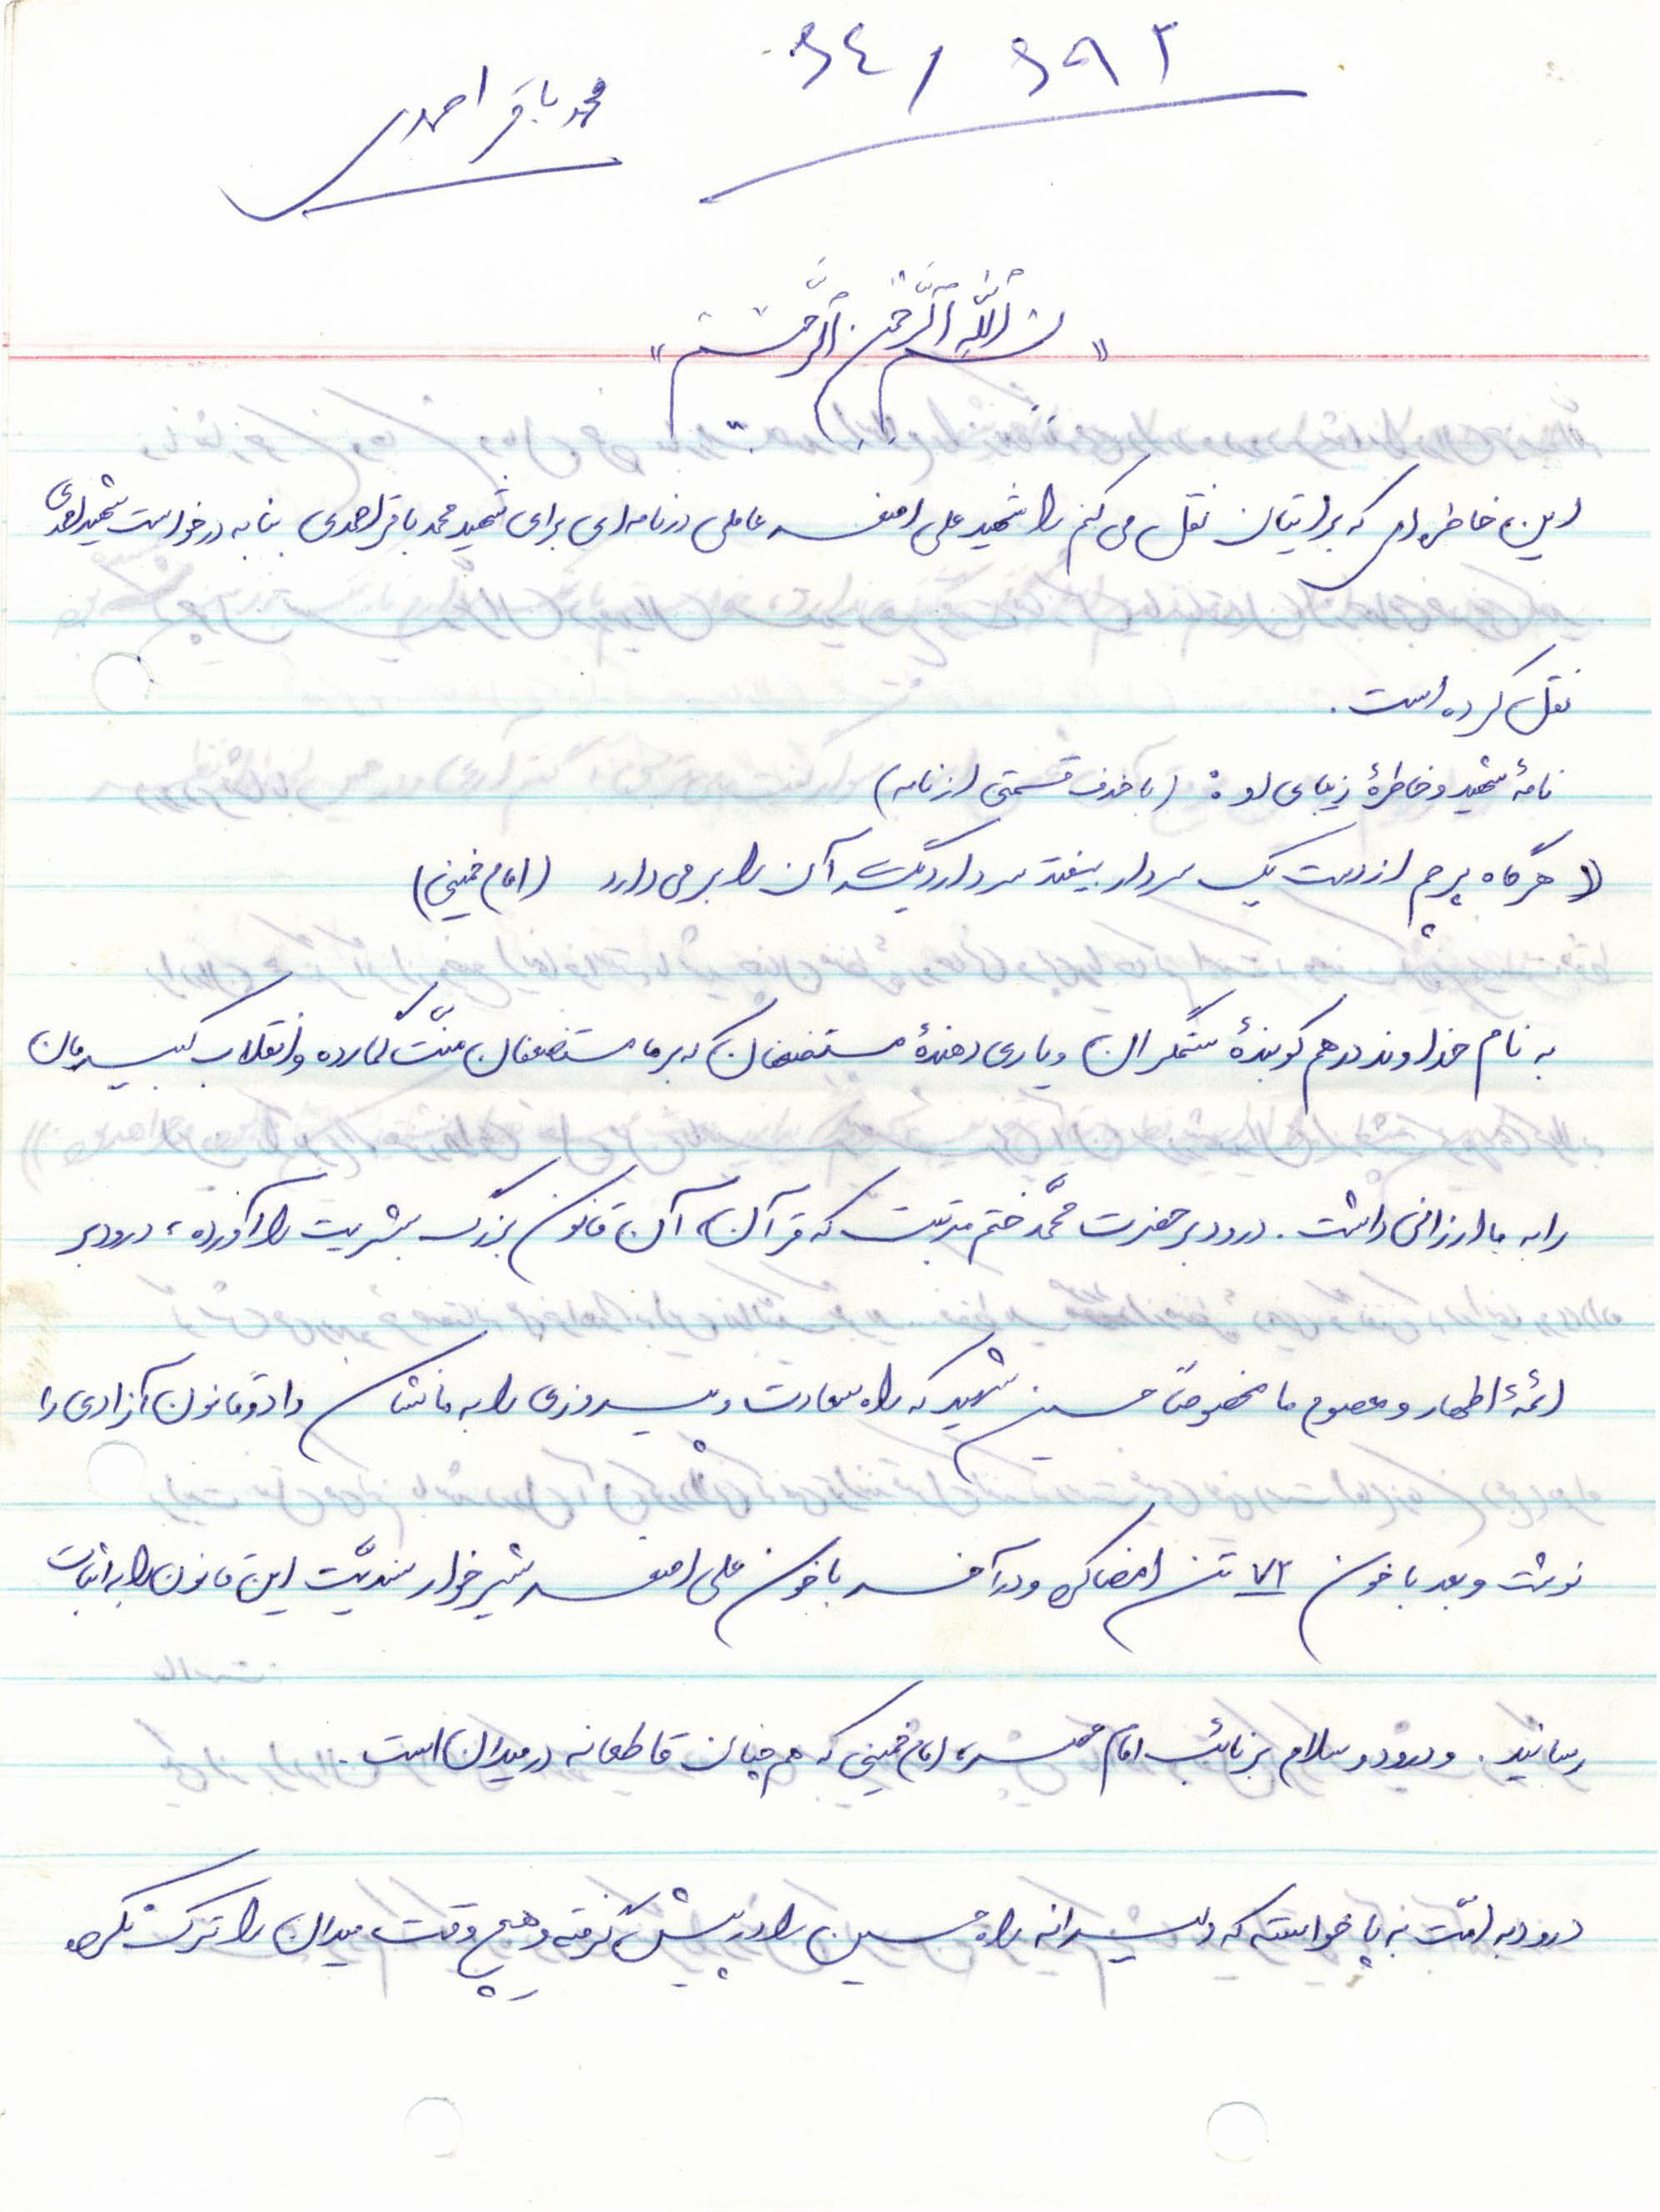 محمد باقر احمدی
« بسم الله الرحمن الرحیم »
این خاطره‌ای که برایتان نقل می کنم را شهید علی اصغر عاملی در نامه‌ای برای شهید محمد باقر احمدی بنا به درخواست شهید احمدی
نقل کرده است .
نامهٔ شهید و خاطرهٔ زیبای او : (با حذف قسمتی از نامه)
« هرگاه پرچم از دست یک سردار بیفتد سردار دیگر آن را بر می دارد (امام خمینی)
به نام خداوند درهم کوبندهٔ ستمگران و یاری دهندهٔ مستضعفان که بر ما مستضعفان منّت گمارده و انقلاب کبیرمان
را به ما ارزانی داشت . درود بر حضرت محمّد ختم مرتبت که قرآن ، آن قانون بزرگ بشریت را آورده ، درود بر
ائمهٔ اطهار و معصوم ما مخصوصاً حسین شهید که راه سعادت و پیروزی را به ما نشان داد و قانون آزادی را
نوشت و بعد با خون ۷۲ تن امضا کرد و در آخر با خون علی اصغر شیرخوار سندیّت این قانون را به اثبات
رسانید . و درود و سلام بر نائب امام عصر ، امام خمینی که هم چنان قاطعانه در میدان است .
درود به امّت به پا خواسته که دلیرانه راه حسین را در پیش گرفته و هیچ وقت میدان را ترک نکرد